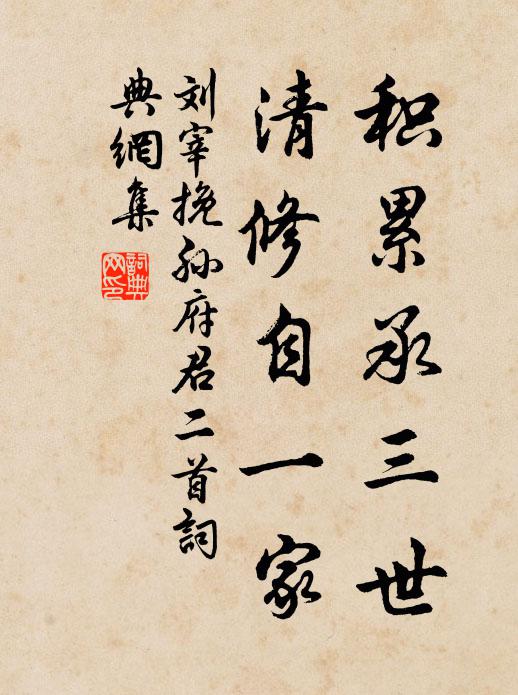 积累承三世
清修自一家
刘宰挽孙府君二首詞
典網集
詞典网印